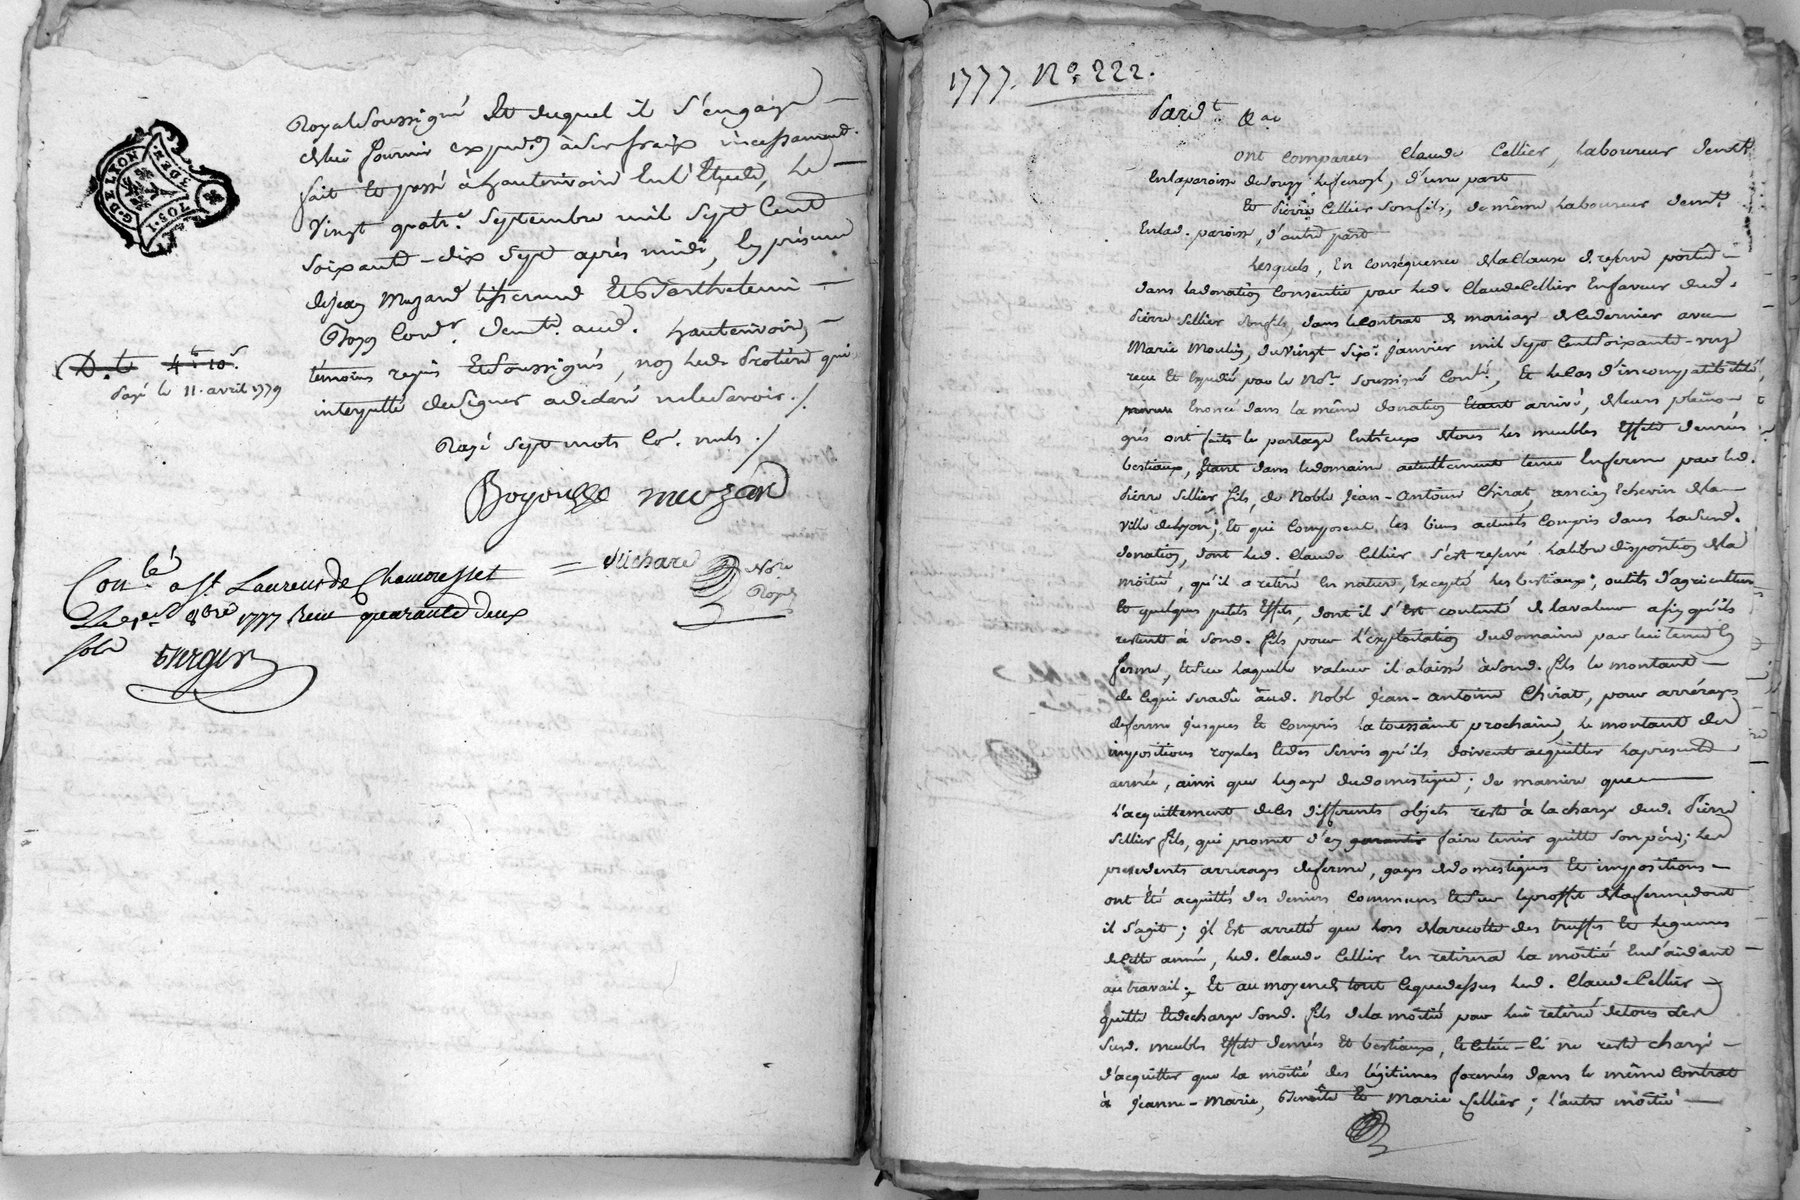 G. DE LYON
Royal soussigné Et duquel il s'engage
de lui fournir expéd.on à ses fraix incessament.
fait et passé à hauterivoire En l'Etude, Le
Vingt quatr.e Septembre mil Sept Cent
soixante-dix Sept après midi, En présence
de Jean Muzard tisserand Et Barthelemi
Cord.r dem.t aud. hauterivoire,
témoins requis Et Soussignés, non led.
interpellé de signer a déclaré ne le Savoir./.
Rayé sept mots Co. nuls./
muzard
D. te 4# 10s
Payé le 11. avril 1779
Richard Not.re Royal
Con.lé à St. Laurent de Chamousset
Le 8bre 1777 Reçu quarante deux
sols
1777. N.o 222.
Pard.t &ac
ont comparus Claude Cellier, Laboureur dem.t
En la paroisse de Souzy , d'une part
Et Pierre Cellier son fils, de même Laboureur dem.t
En lad. paroisse, d'autre part
Lesquels, En conséquence de la Clause de reserve portée
dans la donation Consentie par led. Claude Cellier En faveur dud.
Pierre Cellier son fils, dans le Contrat de mariage de Ce dernier avec
Marie Moulin, du Vingt six.e Janvier mil Sept Cent Soixante-
recu Et Expédié par le No.re soussigné Conl.é, Et le Cas d'incompatibilité,
Enoncé dans la même donation Etant arrivé, de leurs pleins
grés ont faits le partage Entr'eux de tous les meubles Effets denrées
bestiaux, Etant dans le domaine actuellement tenu En ferme par led.
Pierre Cellier fils, de Noble Jean-Antoine Chirat, ancien Echevin de la
Ville de Lyon; Et qui Composent les biens actuels Compris dans la susd.
donation, dont led. Claude Cellier s'est reservé la libre disposition de la
moitié, qu'il a retiré En nature, Excepté les bestiaux, outils d'agriculture
Et quelques petits Effets, dont il s'Est contenté de la valeur afin qu'ils
restent à sond. fils pour l'exploitation du domaine par lui tenu En
ferme, Et sur laquelle valeur il a laissé à sond. fils le montant
de Ce qui sera dû aud. Noble Jean-Antoine Chirat, pour arrérages
de ferme jusques Et Compris la toussaint prochaine, le montant des
impositions royales Et des servis qu'ils doivent acquitter la présente
année, ainsi que le gage du domestique; de maniere que
L'acquittement de Ces différents objets reste à la charge dud. Pierre
Cellier fils, qui promet d'en garantir faire tenir quitte son père; Les
precedents arrérages de ferme, gages de domestiques Et impositions
ont Eté acquittés des deniers Communs Et sur le proffit de la ferme dont
il s'agit; Il Est arretté que lors de la recolte des truffes Et Legumes
de Cette année, led. Claude Cellier En retirera la moitié En s'aidant
au travail; Et au moyen de tout Ce que dessus led. Claude Cellier
quitte Et decharge sond. fils de la moitié par lui retiré de tous les
susd. meubles Effets denrées Et bestiaux, Et Celui-Ci ne reste chargé
d'acquitter que la moitié des légitimes fixées dans le même Contrat
à Jeanne-Marie, Benoite Et Marie Cellier; l'autre moitié